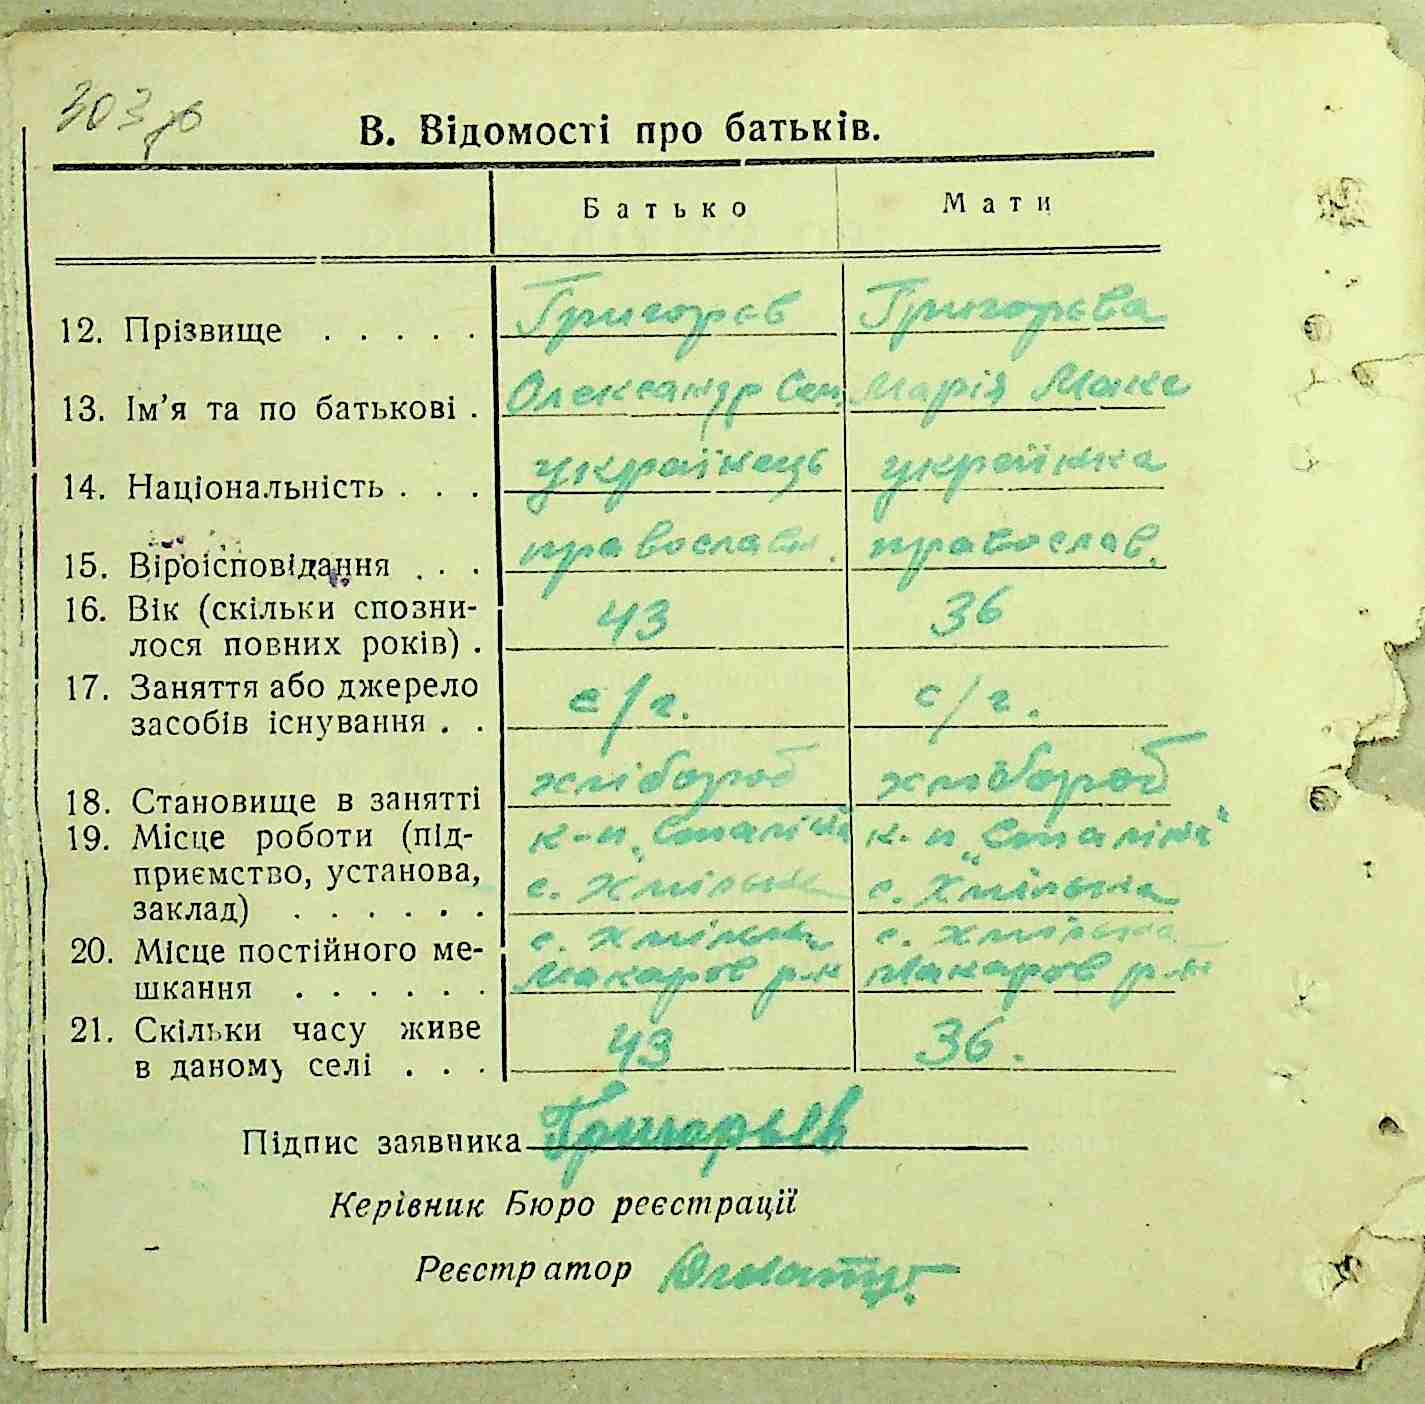 303 зв
В. Відомості про батьків.
Батько Мати
12. Прізвище . . . . . Григорєв Григорєва
13. Ім'я та по батькові . Олександр Сем. Марія Макс
14. Національність . . . українець українка
15. Віроісповідання . . . православн. православ.
16. Вік (скільки спозни-
лося повних років) . 43 36
17. Заняття або джерело
засобів існування . . с/г. с/г.
18. Становище в занятті хлібороб хлібороб
19. Місце роботи (під- к-п „Сталіна“ к-п „Сталіна“
приємство, установа, с. Хмільна с. Хмільна
заклад) . . . . . .
20. Місце постійного ме- с. Хмільна с. Хмільна
шкання . . . . . . Макаров р-н Макаров р-н
21. Скільки часу живе
в даному селі . . . 43 36.
Підпис заявника Григорьев
Керівник Бюро реєстрації
Реєстратор